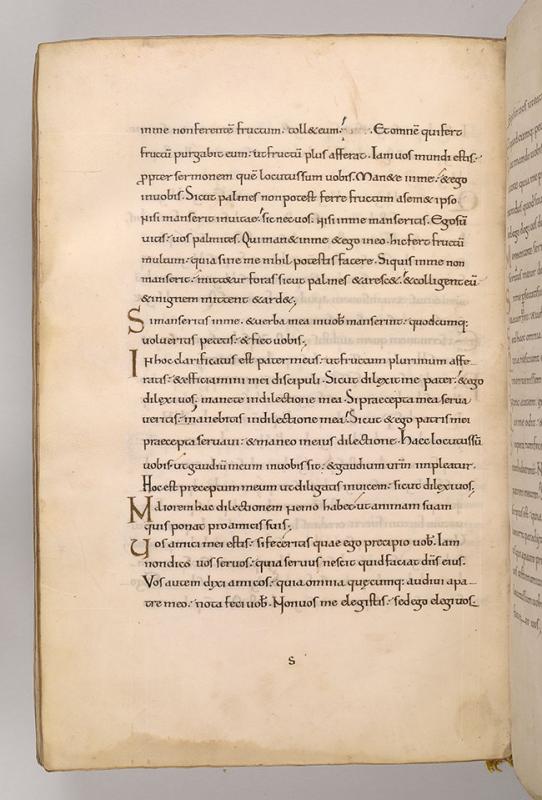 inme nonferentē fructum: toll&eum: Etomnē quifert
fructū purgabit eum: utfructū plus afferat. Iamuos mundi estis:
ppter sermonem quē locutussum uobis. Man&e inme: &ego
inuobis. Sicut palmes nonpotest ferre fructum asem&ipso
Nisi manserit inuitae: sic nec uos: Nisi inme manseritis. Egosū
uitis: uos palmites. Qui man& inme &ego ineo: hic fert fructū
multum: quia sine me nihil potestis facere. Siquis inme non
manserit: mitt&ur foras sicut palmes &aresc&: &colligent eū
&inignem mittent &ard&;
Simanseritis inme: &uerba mea inuob manserint: quodcumq:
uolueritis petetis: & fiet uobis;
INhoc clarificatus est pater meus: utfructum plurimum affe
ratis: &efficiamini mei discipuli. Sicut dilexit me pater: &ego
dilexi uos: manete indilectione mea. Si praecepta mea serua
ueritis: manebitis indilectione mea. Sicut &ego patris mei
praecepta seruaui: &maneo ineius dilectione. Haec locutussū
uobis: utgaudiū meum inuobis sit: &gaudium urm impleatur.
Hoc est preceptum meum ut diligatis inuicem: sicut dilexi uos;
Maiorem hac dilectionem Nemo habet: ut animam suam
quis ponat pro amicis suis;
Uos amici mei estis: sifeceritis quae ego precipio uob. Iam
nondico uos seruos: quia seruus nescit quid faciat dns eius.
Vos autem dixi amicos: quia omnia quecumq: audiui apa
tre meo: nota feci uob. Non uos me elegistis: sed ego elegi uos
s